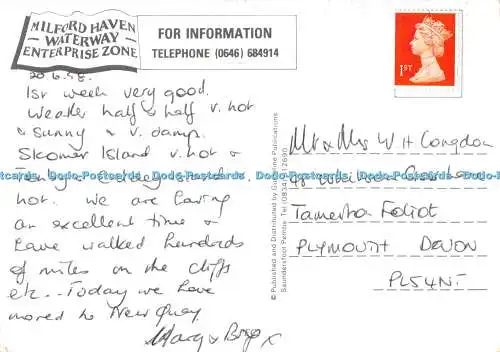 MILFORD HAVEN
WATERWAY
ENTERPRISE ZONE
FOR INFORMATION
TELEPHONE (0646) 684914
1ST
1st week very good.
Weather half & half v. hot
& Sunny & v. damp.
Skomer Island v. hot &
Dodo-Postcards Dodo-Postcards Dodo-Postcards Dodo-Postcards Dodo-Postcards
hot. We are having
an excellent time &
have walked hundreds
of miles on the cliffs
etc.. Today we have
moved to New Quay.
Mary &
© Published and Distributed by
Saundersfoot Tel (0834) 812690
Mr & Mrs W H Congdon
Tamerton Foliot
PLYMOUTH DEVON
PL54NT